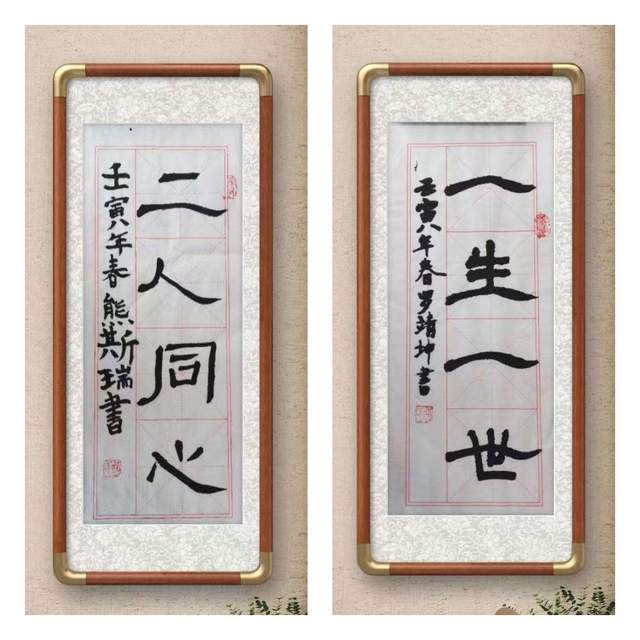 二人同心
壬寅年春熊斯瑞書
一生一世
壬寅年春罗靖坤書